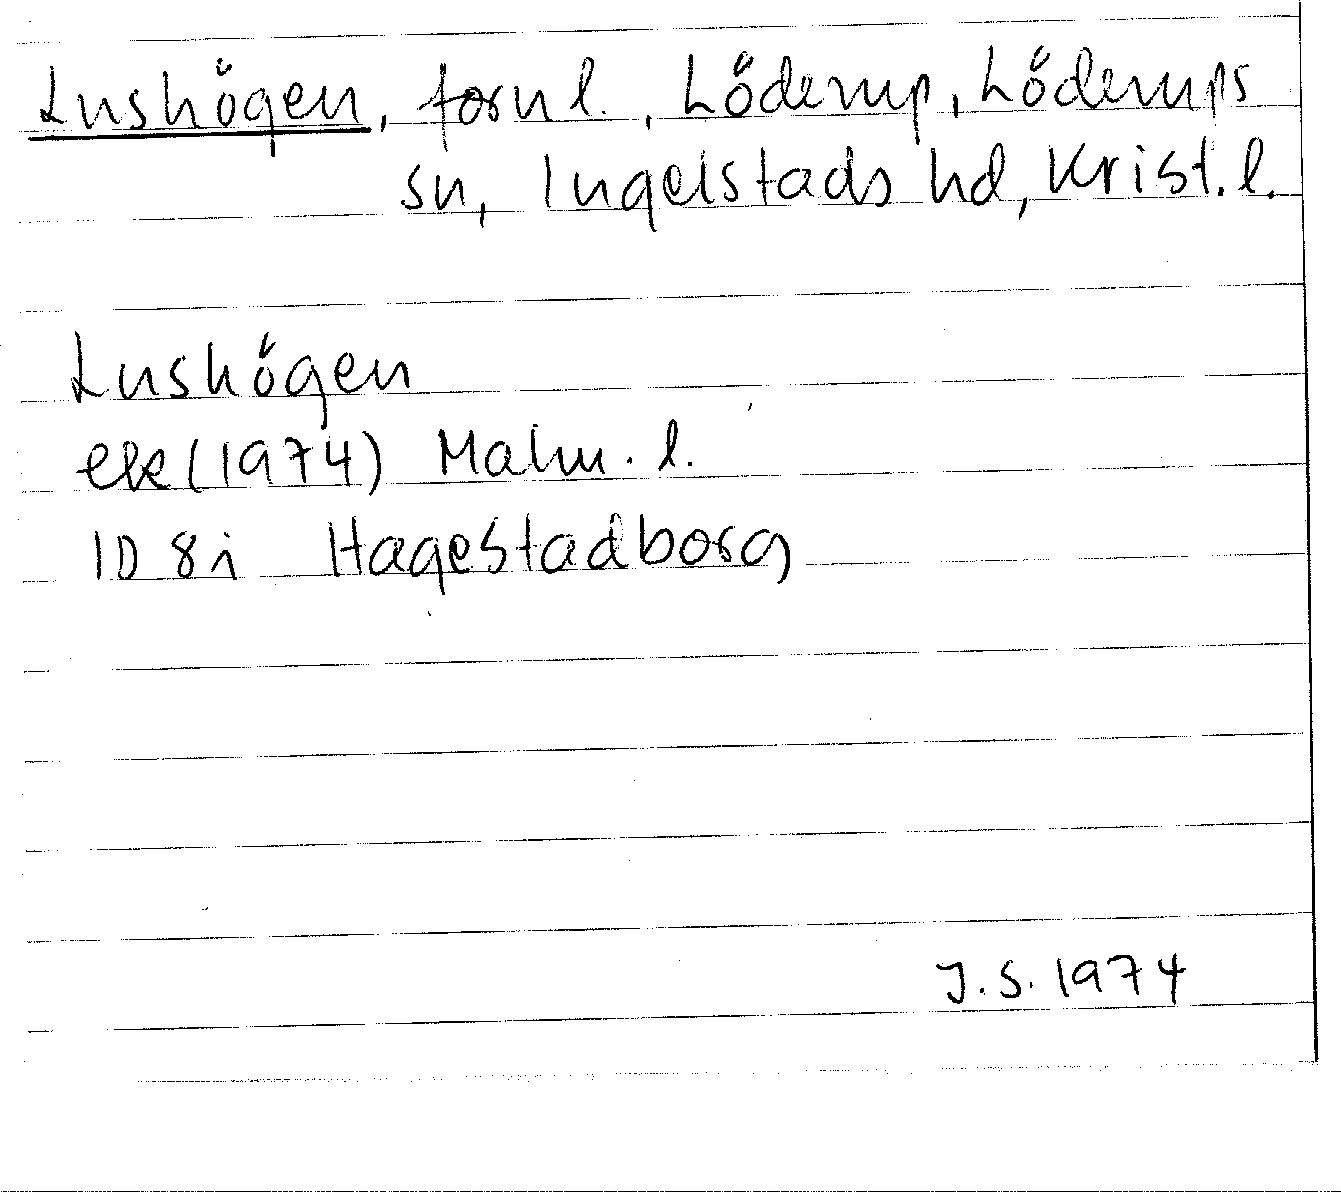 Lushögen, fornl., Löderup, Löderups
sn, Ingelstads hd, Krist. l.
Lushögen
ek (1974) Malm. l.
1D 8i Hagestadborg
J.S. 1974